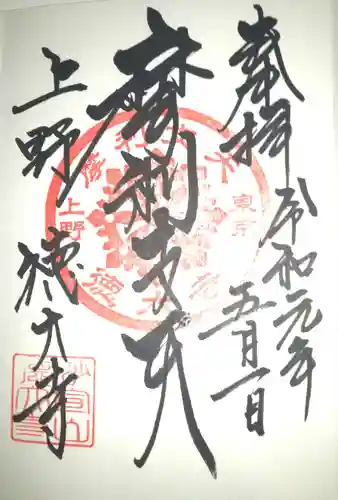 奉拝
令和元年
五月一日
摩利支天
上野
徳大寺
東京
上野